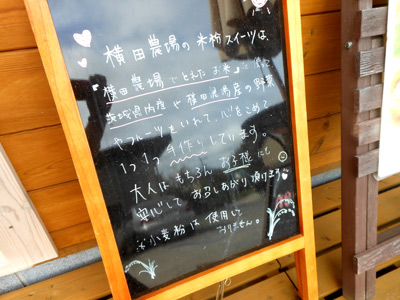 横田農場の米粉スイーツは、
横田農場でとれたお米と
茨城県内産や龍ケ崎産の野菜
やフルーツをいれて、心をこめて
1つ1つ手作りしています。
大人はもちろんお子様にも
安心してお召しあがり頂けます
※小麦粉は使用して
おりません。